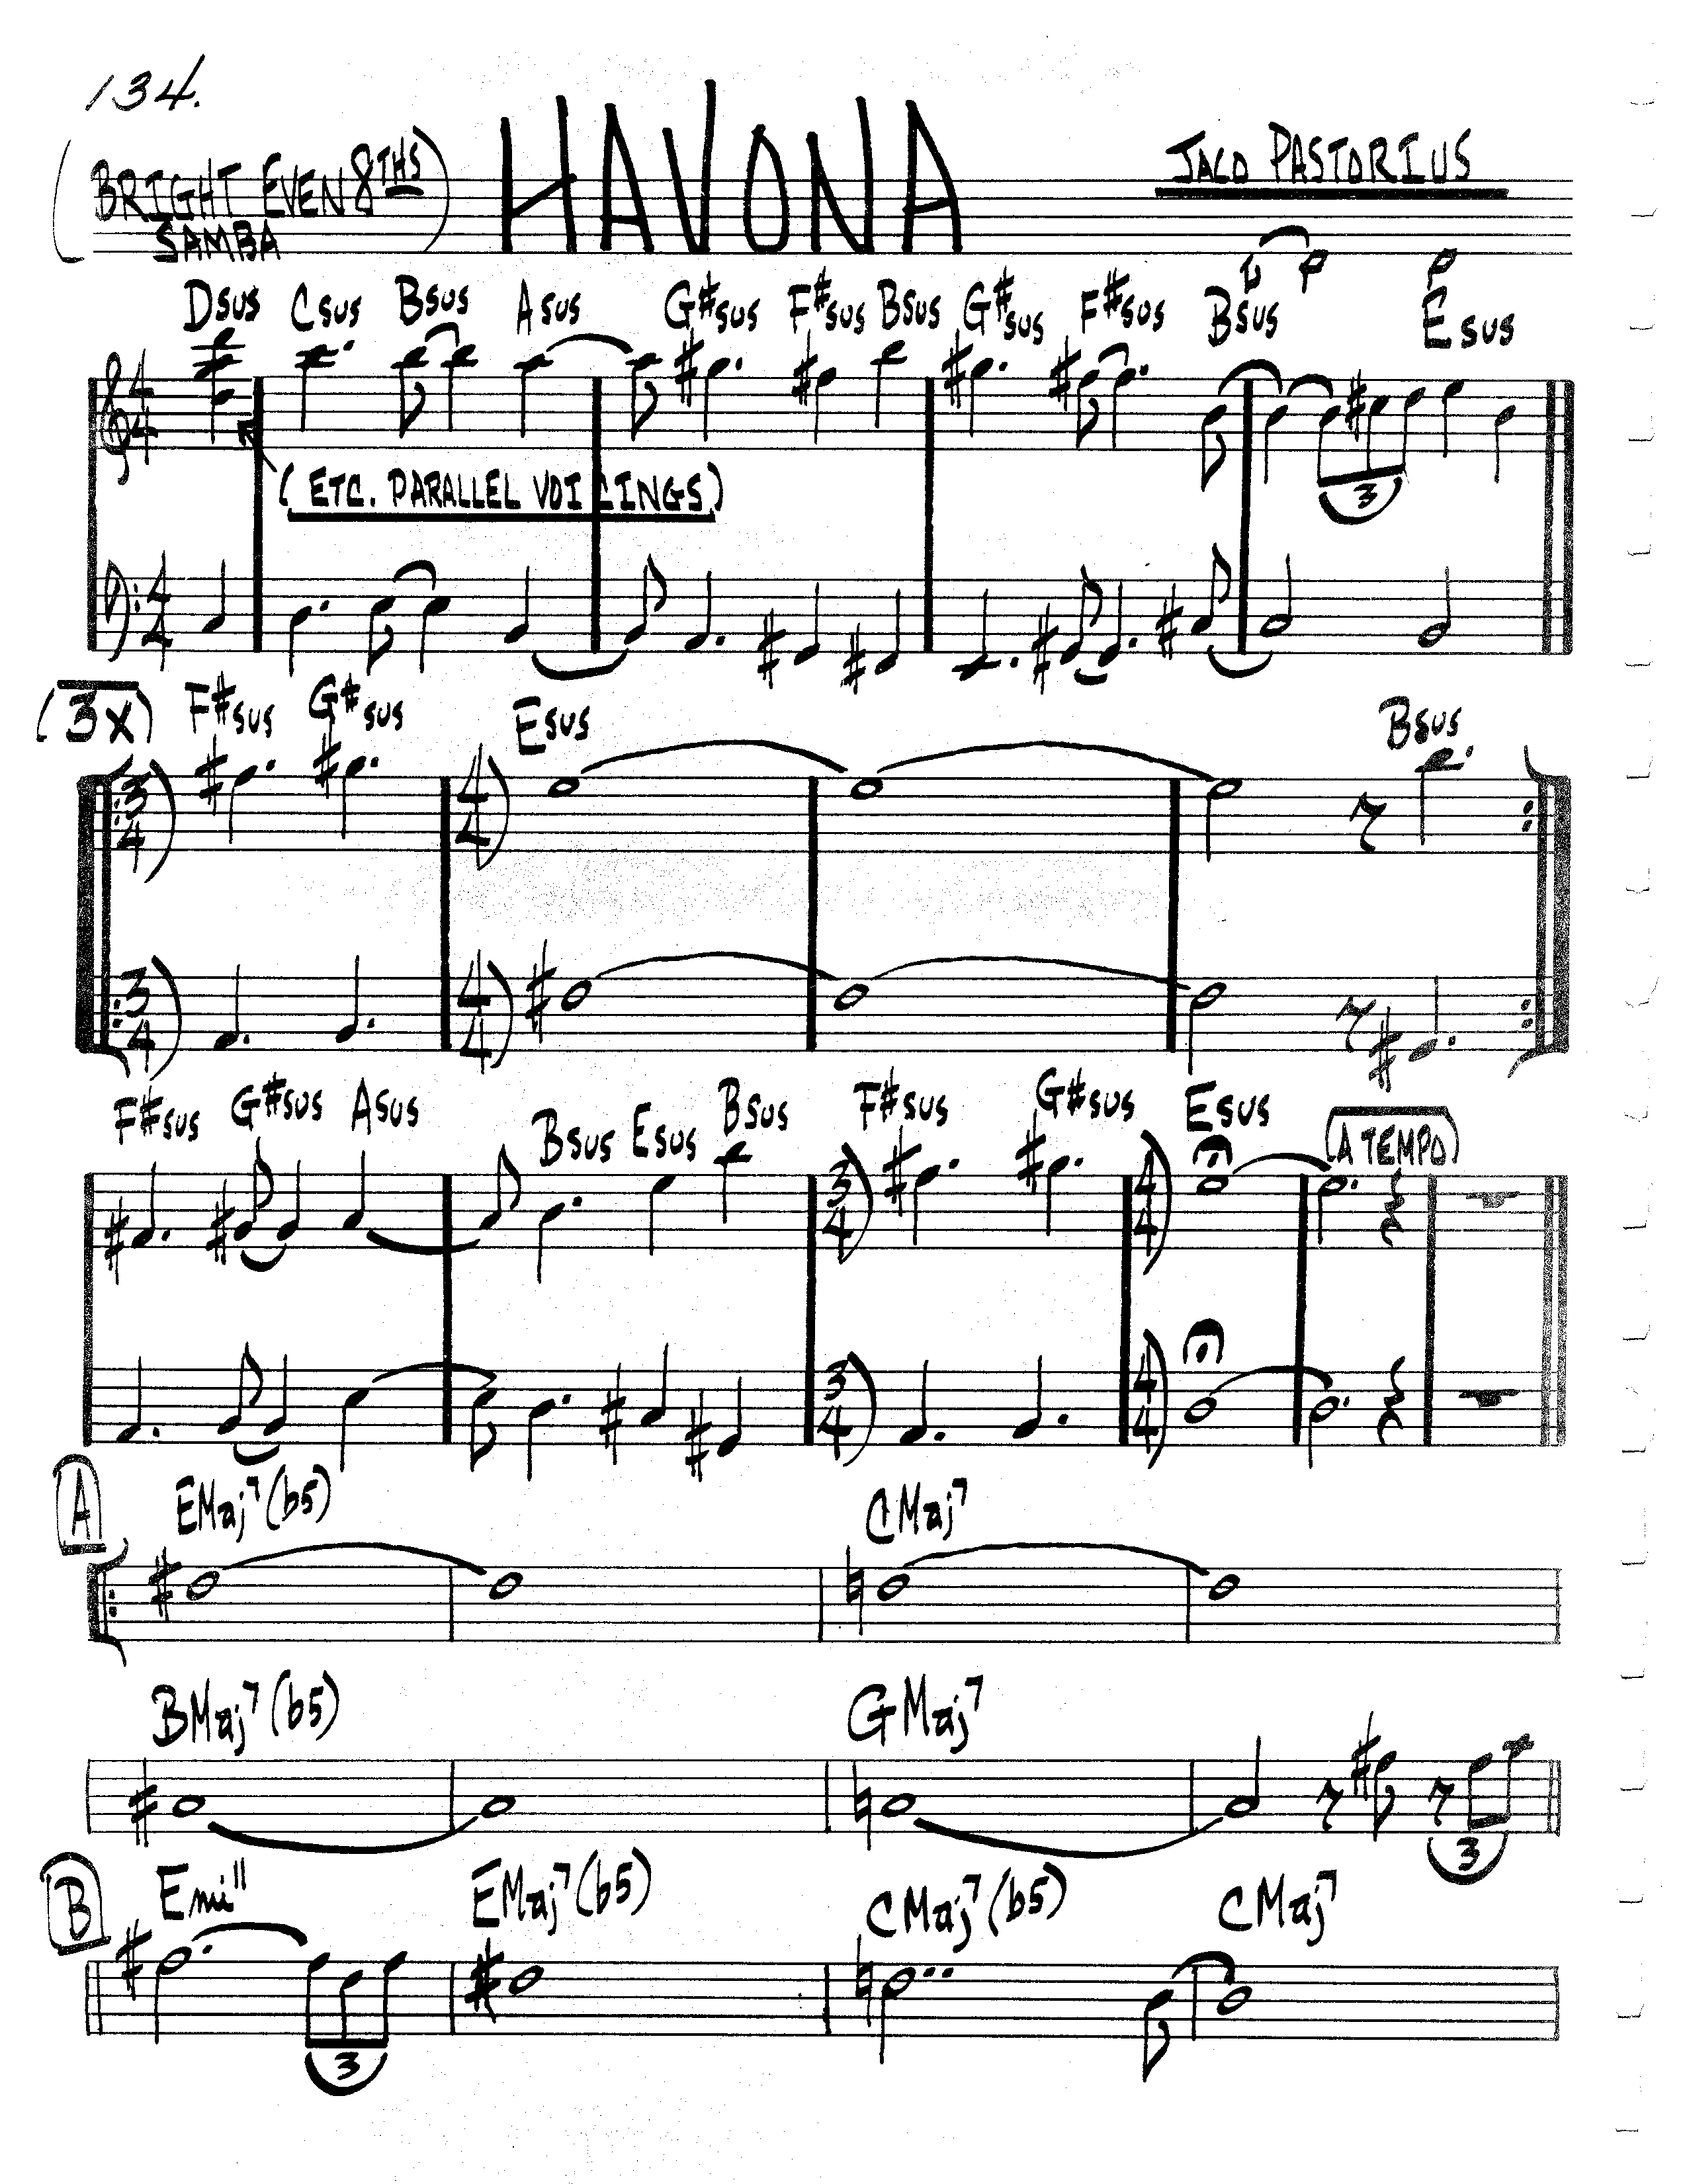 134.
(BRIGHT EVEN 8THS SAMBA)
HAVONA
JACO PASTORIUS
Dsus Csus Bsus Asus G#sus F#sus Bsus G#sus F#sus Bsus Esus
4 4
(ETC. PARALLEL VOICINGS)
3
4 4
(3X) F#sus G#sus Esus Bsus
3 4 4 4
3 4 4 4
F#sus G#sus Asus Bsus Esus Bsus F#sus G#sus Esus (A TEMPO)
3 4 4 4
3 4 4 4
A EMaj7(b5) CMaj7
BMaj7(b5) GMaj7
3
B Emi11 EMaj7(b5) CMaj7(b5) CMaj7
3